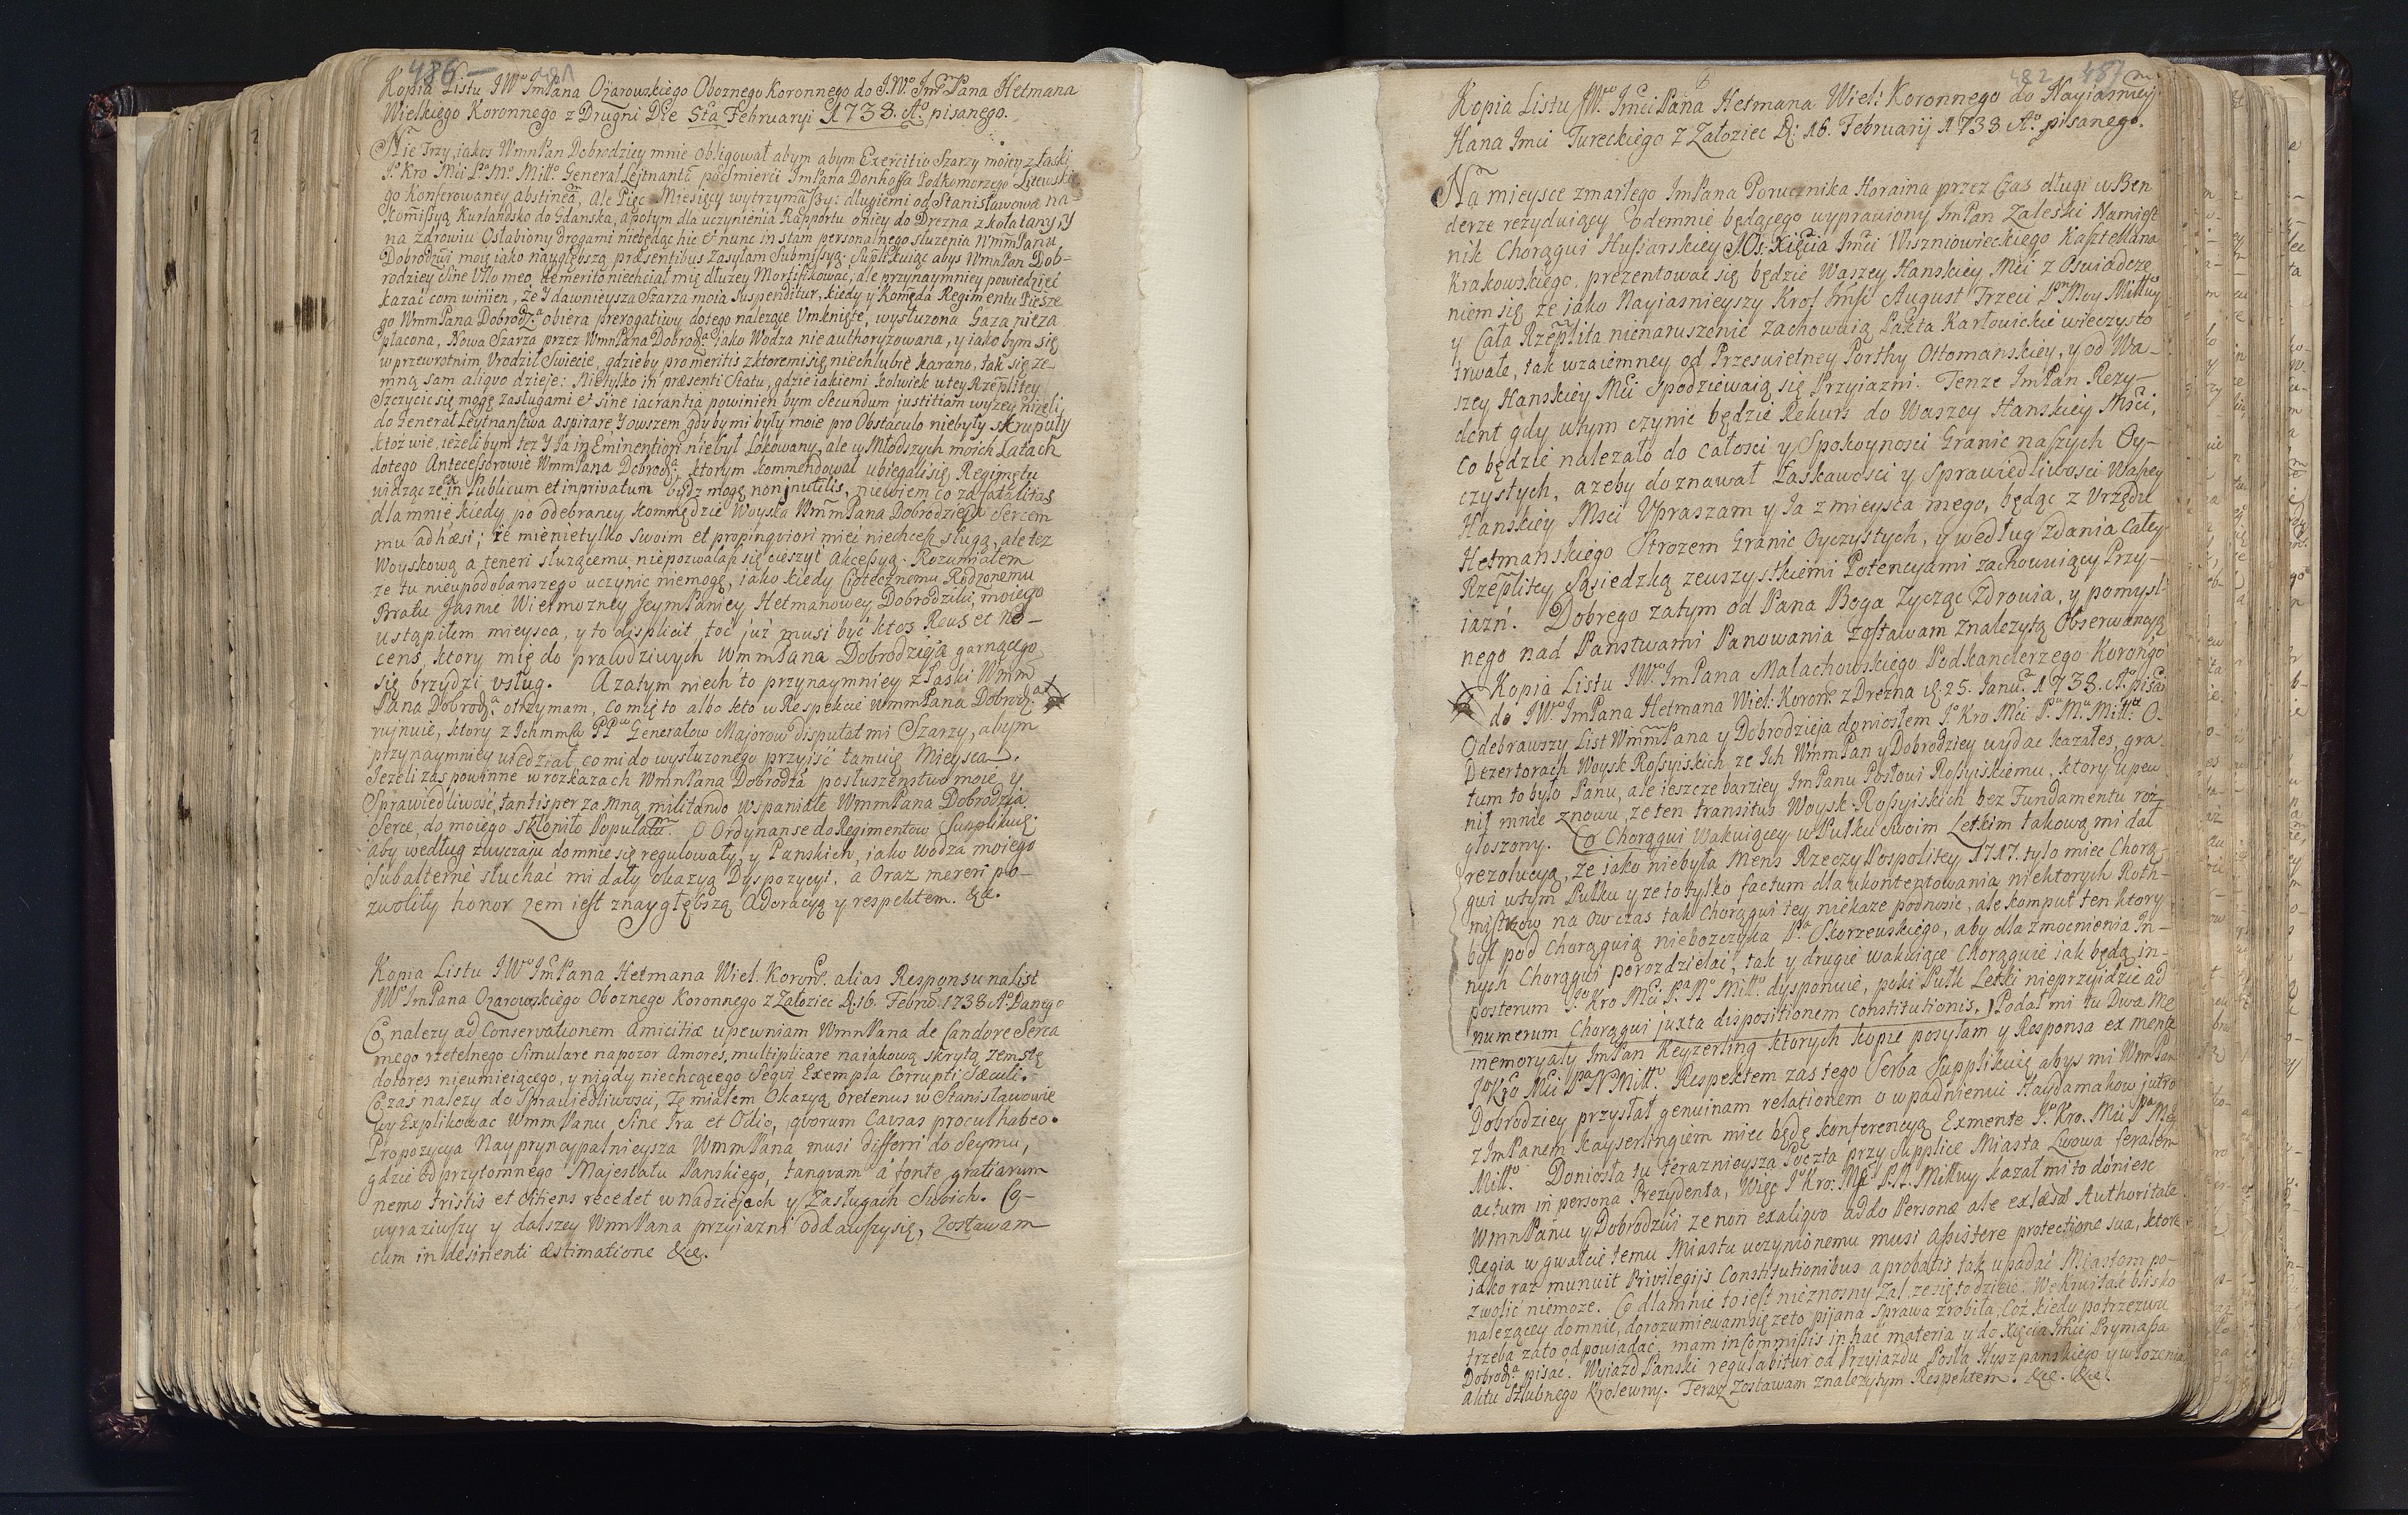 486 — 481
Kopia Listu JWo ImPana Ożarowskiego Oboznego Koronnego do J.Wo. ImPana Hetmana
Wielkiego Koronnego z Drugni Die 5ta Februaryi 1738. Ao. pisanego.
Nie Trzy, iakoś WmnPan Dobrodziey mnie obligował abym abym Exercitio Szarzy moiey z łaski
Jo Kro Imci Pa Mo Miłło General Lejtnantē po śmierci ImPana Donhoffa Podkomorzego Litewskie
go Konferowaney abstineā, Ale Pięc Miesięcy wytrzymaſſy: długiemi od Stanisławowa na
Komiſsyą Kurlandsko do Gdanska, a potym dla uczynienia Rapportu oniey do Drezna zkołatany, y
na zdrowiu Osłabiony drogami niebędąc hic et nunc in stam personalnego służenia WmmPanu
Dobrodzwi moię iako naygłębszą præsentibus zasyłam Submiſsyą: Supplikuiąc abyś WmnPan Dob-
rodziey Sine Ullo meo demerito niechciał mię dłużey Mortifikować, ale przynaymniey powiedzieć
kazać com winien, że y dawnieysza Szarza moia Suspenditur, kiedy y Komęda Regimentu Piesze
go WmmPana Dobrodz:a obiera prerogatiwy do tego nalezące Umknięte, wysłuzona Gaza nieza
płacona, Nowa Szarza przez WmnPana Dobrodz:a iako Wodza nie authoryzowana, y iakobym się
w przewrotnim Urodził Swiecie, gdzieby pro meritis z ktoremi się niechlubię karano, tak się ze
mną sam aliqvo dzieje: Nietylko in præsenti Statu, gdzie iakiemi kolwiek u tey Rzeplitey
Szczycic się mogę zasługami et sine iacrantia powinien bym Secundum justitiam wyzey nizeli
do General Leytnanstwa aspirare, y owszem gdyby mi były moie pro Obstaculo niebyły skrupuły
ktoż wie, iezelibym tez y Ia in Eminentiori niebył Lokowany, ale w Młodszych moich Latach
do tego Antecessorowie WmmPana Dobrodz:a ktorym kommendował ubiegali się Regimętu
widząc ze in Publicum et in privatum bydz mogę non inutilis, niewiem co za fatalitas
dla mnie kiedy po odebraney kommędzie Woyska WmmPana Dobrodzieja Sercem
mu adhæsi; że mie nietylko swoim et propinqviori mieć niechceſz sługą, ale tez
Woyskową a teneri służącemu niepozwalaſz się cieszyć akceſsyą. Rozumiałem
ze tu nieupodobanszego uczynic niemogę, iako kiedy Ciotecznemu Rodzonemu
Bratu Jasnie Wielmozney JeymPaniey Hetmanowey Dobrodziki, moiego
ustąpiłem mieysca, y to displicit, toć już musi być ktoś Reus et No-
cens, ktory mię do prawdziwych WmmPana Dobrodzieja garnącego
się brzydzi usług. A zatym niech to przynaymniey z łaski Wmm
Pana Dobrodz:a otrzymam, co mię to albo kto w Respekcie WmmPana Dobrodz:a
rujnuie, ktory z Ichmmciw PPw Generałow Majorow disputał mi Szarzy, abym
przynaymniey wiedział, co mi do wysłuzonego przyiść tamuię Mieysca.
Jezeli zaś powinne w rozkazach WmnPana Dobrodza posłuszenstwo moie, y
Sprawiedliwość, tantisper za Mną militando wspaniałe WmmPana Dobrodzja
Serce, do moiego skłoniło Populatū. O Ordynanse do Regimentow Supplikuię
aby według zwyczaju do mnie się regulowały, y Panskich, iako Wodza moiego
Subalternè słuchać mi dały okazyą Dyspozycyi, a Oraz mereri po-
zwoliły honor zem iest z naygłębszą Adoracyą y respektem. &c.
Kopia Listu JWo ImPana Hetmana Wiel. Koronē. alias Responsu na List
JWo ImPana Ożarowskiego Oboznego Koronnego z Załoziec D. 16. Febru. 1738 Ao Danego
Co nalezy ad Conservationem Amicitiæ upewniam WmnPana de Candore Serca
mego rzetelnego Simulare na pozor Amores, multiplicare na iakową skrytą zemstę
dolores nieumieiącego, y nigdy niechcącego Seqvi Exempla Corrupti Sæculi.
Co zaś nalezy do Sprawiedliwosci, Te miałem Okazyą oretenus w Stanisławowie
wy Explikować WmmPanu, Sine Ira et Odio, qvorum Causas procul habeo.
Propozycya Nayprzyncypalnieysza WmmPana musi differri do Seymu,
gdzie od przytomnego Majestatu Panskiego, tanqvam a fonte gratiarum
nemo tristis et sitiens recedet w nadziejach y Zasługach Swoich. Co-
wyraziwſzy y dalszey WmnPana przyjazni oddawſzy się, Zostawam
cum in desinenti æstimatione &c.
482 487
Kopia Listu JWo Imci Pana Hetmana Wiel: Koronnego do Nayiasniey
Hana Imci Tureckiego z Załoziec D: 16. Februarij 1738 Ao. pisanego.
Na mieysce zmarłego ImPana Porucznika Horaina przez Czas długi w Ben
derze rezyduiący Odemnie będącego wyprawiony ImPan Zaleski Namiest
nik Chorągwi Huſsarskiey J.Os. Xięcia Imci Wiszniowieckiego Kasztellana
Krakowskiego, prezentować się będzie Waszey Hanskiey Mci z Oswiadcze
niem się, że iako Nayiasnieyszy Krol Imść August Trzeci Pan Moy Miłłwy
y Cała Rzeplita nienaruszenie zachowaią Pakta Karłowickie wieczysto
trwałe, tak wzaiemney od Przeswietney Porthy Ottomanskiey, y od Wa-
szey Hanskiey Mci Spodziewaią się Przyiazni. Tenze ImPan Rezy-
dent gdy w tym czynić będzie Rekurs do Waszey Hanskiey Mści,
co będzie nalezało do całosci y Spokoynosci Granic naſzych Oy-
czystych, azeby doznawał Łaskawosci y Sprawiedliwosci Waſzey
Hanskiey Msci Upraszam y Ia z mieysca mego, będąc z Urzędu
Hetmanskiego Strozem Granic Oyczystych, y według zdania całey
Rzeplitey Sąsiedzką zewszystkiemi Potencyami zachowuiący Przy-
iazń. Dobrego zatym od Pana Boga życząc Zdrowia, y pomysl-
nego nad Panstwami Panowania zostawam Znalezytą Obserwancyą
Kopia Listu JWo ImPana Małachowskiego Podkanclerzego Korongo
do JWo ImPana Hetmana Wiel: Koronē. z Drezna D. 25. Janua. 1738. Ao. pisan
Odebrawszy List WmmPana y Dobrodzieja doniosłem Jo Kro Mci Pa. Ma. Miłła. O
Dezertorach Woysk Roſsyiskich ze Ich WmmPan y Dobrodziey wydac kazałeś, gra
tum to było Panu, ale ieszcze barziey ImPanu Posłowi Roſsyiskiemu, ktory upew
nił mnie znowu, ze ten transitus Woysk Roſsyiskich bez Fundamentu roz
głoszony. Co Chorągwi Wakuiącey w Pułku Swoim Letkim takową mi dał
rezolucyą, że iako niebyła Mens Rzeczy Pospolitey 1717. tylo miec Chorą
gwi w tym Pułku y ze to tylko factum dla ukontentowania niektorych Roth-
mistrzow na ow czas tak Chorągwi tey niekaze podnosic, ale komput ten ktory
był pod Chorągwią nieboszczyka Pa Skorzewskiego, aby dla zmocnienia In-
nych Chorągwi porozdzielać, tak y drugie wakuiące Chorągwie iak będą in-
posterum Jo Kro Mci Pa No Miłło. dysponuie, poki Pułk Letki nieprzyidzie ad
numerum Chorągwi juxta dispositionem Constitutionis. Podał mi tu Dwa Me
memoryały ImPan Keyzerling ktorych kopie posyłam y Responsa ex mente
Jo Kro Mci Pa N Miłło. Respektem zaś tego Serba Supplikuię abyś mi WmPan
Dobrodziey przysłał genuinam relationem o wpadnieniu Haydamakow jutro
z ImPanem Kayserlingiem miec będę konferencyą Exmente Jo Kro. Mci Pa Ma
Miłło. Doniosła tu teraznieysza Poczta przy Supplice Miasta Lwowa feralem
actum in persona Prezydenta, Więc Jo Kro: Mć P.N. Miłłwy kazał mi to doniesc
WmnPanu y Dobrodzwi ze non ex aliqvo ad do Personæ ale ex læsa Authoritate
Regia w gwałcie temu Miastu uczynionemu musi aſsistere protectione sua, ktore
iako raz munuit Privilegijs Constitutionibus aprobatis tak upadać Miastom po-
zwolić niemoze. Co dla mnie to iest nieznosny Zal, ze się to dzieie. We krwi tak blisko
nalezącey do mnie, dorozumiewam się ze to pijana sprawa zrobiła, Coż kiedy po trzezwu
trzeba zato odpowiadać, mam in Commiſsis in hac materia y do Xięcia Imci Prymaſa
Dobrodz:a pisać. Wyiazd Panski regulabitur od Przyiazdu Posła Hyszpanskiego y włozenia
aktu szlubnego Krolewny. Teraz Zostawam znalezytym Respektem. &c. &c.